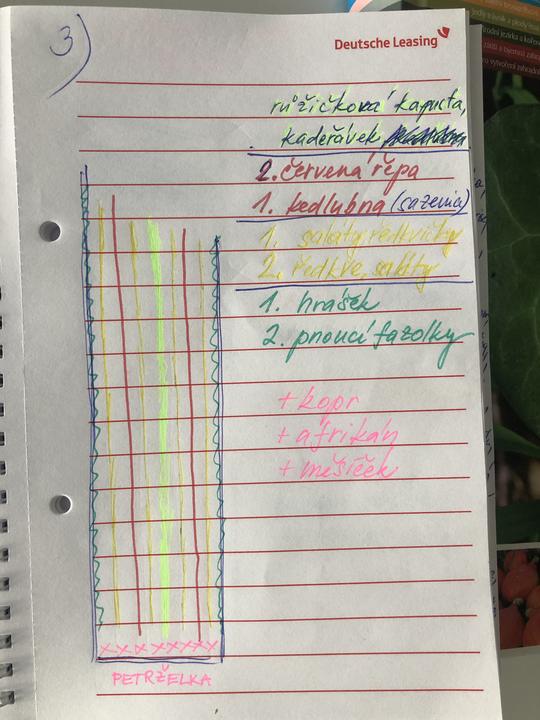 3)
Deutsche Leasing
růžičková kapusta,
kadeřávek
2. červená řepa
1. kedlubna (sazenia)
1. saláty, ředkvičky
2. ředkve, saláty
1. hrášek
2. pnoucí fazolky
+ kopr
+ afrikán
+ měsíček
xxxxxxxx
PETRŽELKA